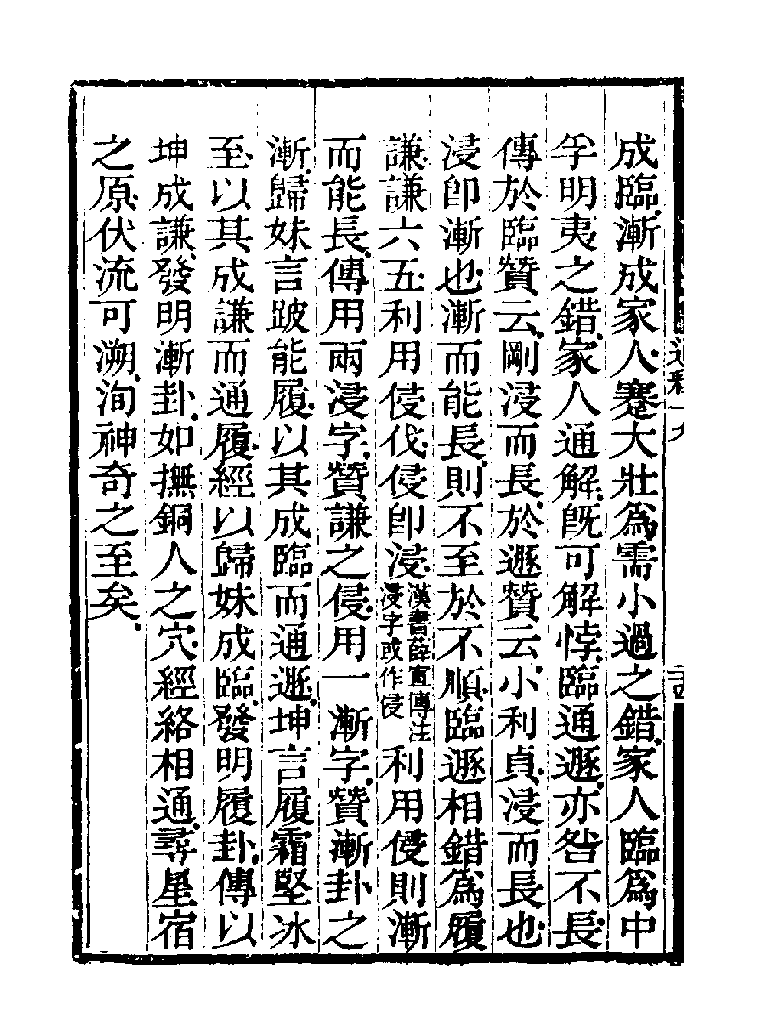 成臨漸成家人蹇大壯爲需小過之錯家人臨爲中
孚明夷之錯家人通解旣可解悖臨通遯亦咎不長
傳於臨贊云剛浸而長於遯贊云小利貞浸而長也
浸卽漸也漸而能長則不至於不順臨遯相錯爲履
謙謙六五利用侵伐侵卽浸漢書薛宣傳注浸字或作侵利用侵則漸
而能長傳用兩浸字贊謙之侵用一漸字贊漸卦之
漸歸妹言跛能履以其成臨而通遯坤言履霜堅冰
至以其成謙而通履經以歸妹成臨發明履卦傳以
坤成謙發明漸卦如撫銅人之穴經絡相通尋星宿
之原伏流可溯洵神奇之至矣
通釋十九